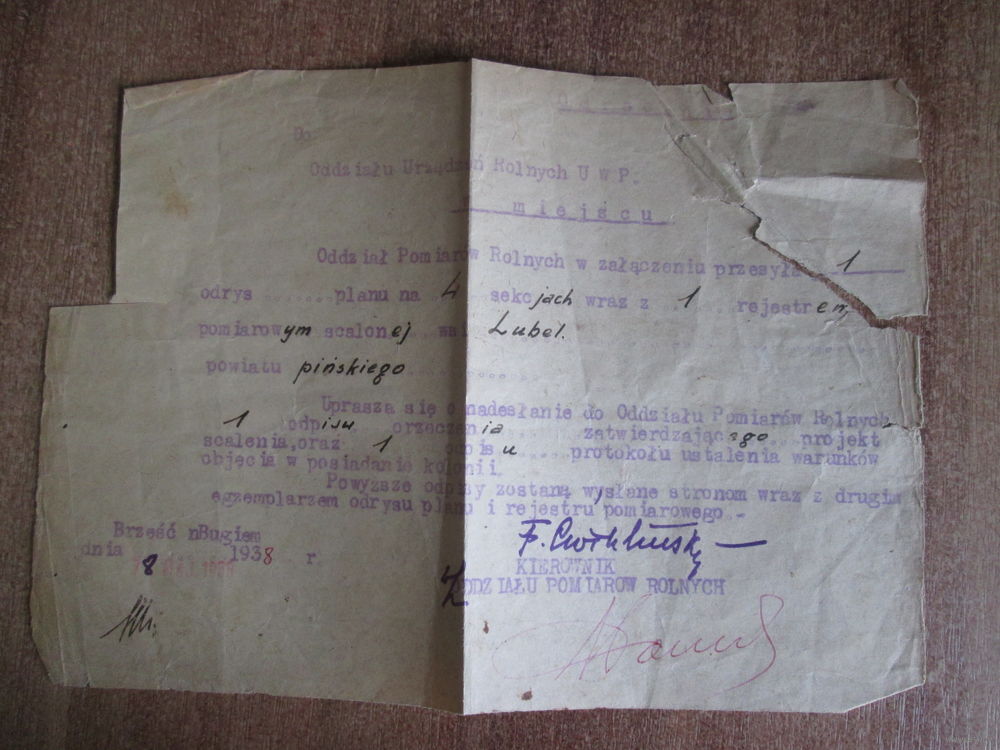 Do
Oddziału Urządzeń Rolnych U W P.
miejscu
Oddział Pomiarów Rolnych w załączeniu przesyła 1
odrys ....... planu na 4 sekcjach wraz z 1 rejestrem
pomiarowym scalonej wsi Lubel.
powiatu pińskiego
Uprasza się o nadesłanie do Oddziału Pomiarów Rolnych
1 odpisu orzeczenia zatwierdzającego projekt
scalenia, oraz 1 odpisu protokołu ustalenia warunków
objęcia w posiadanie kolonii.
Powyższe odpisy zostaną wysłane stronom wraz z drugim
egzemplarzem odrysu planu i rejestru pomiarowego.-
Brześć nBugiem
dnia 8 1938 r.
KIEROWNIK
ODDZIAŁU POMIAROW ROLNYCH